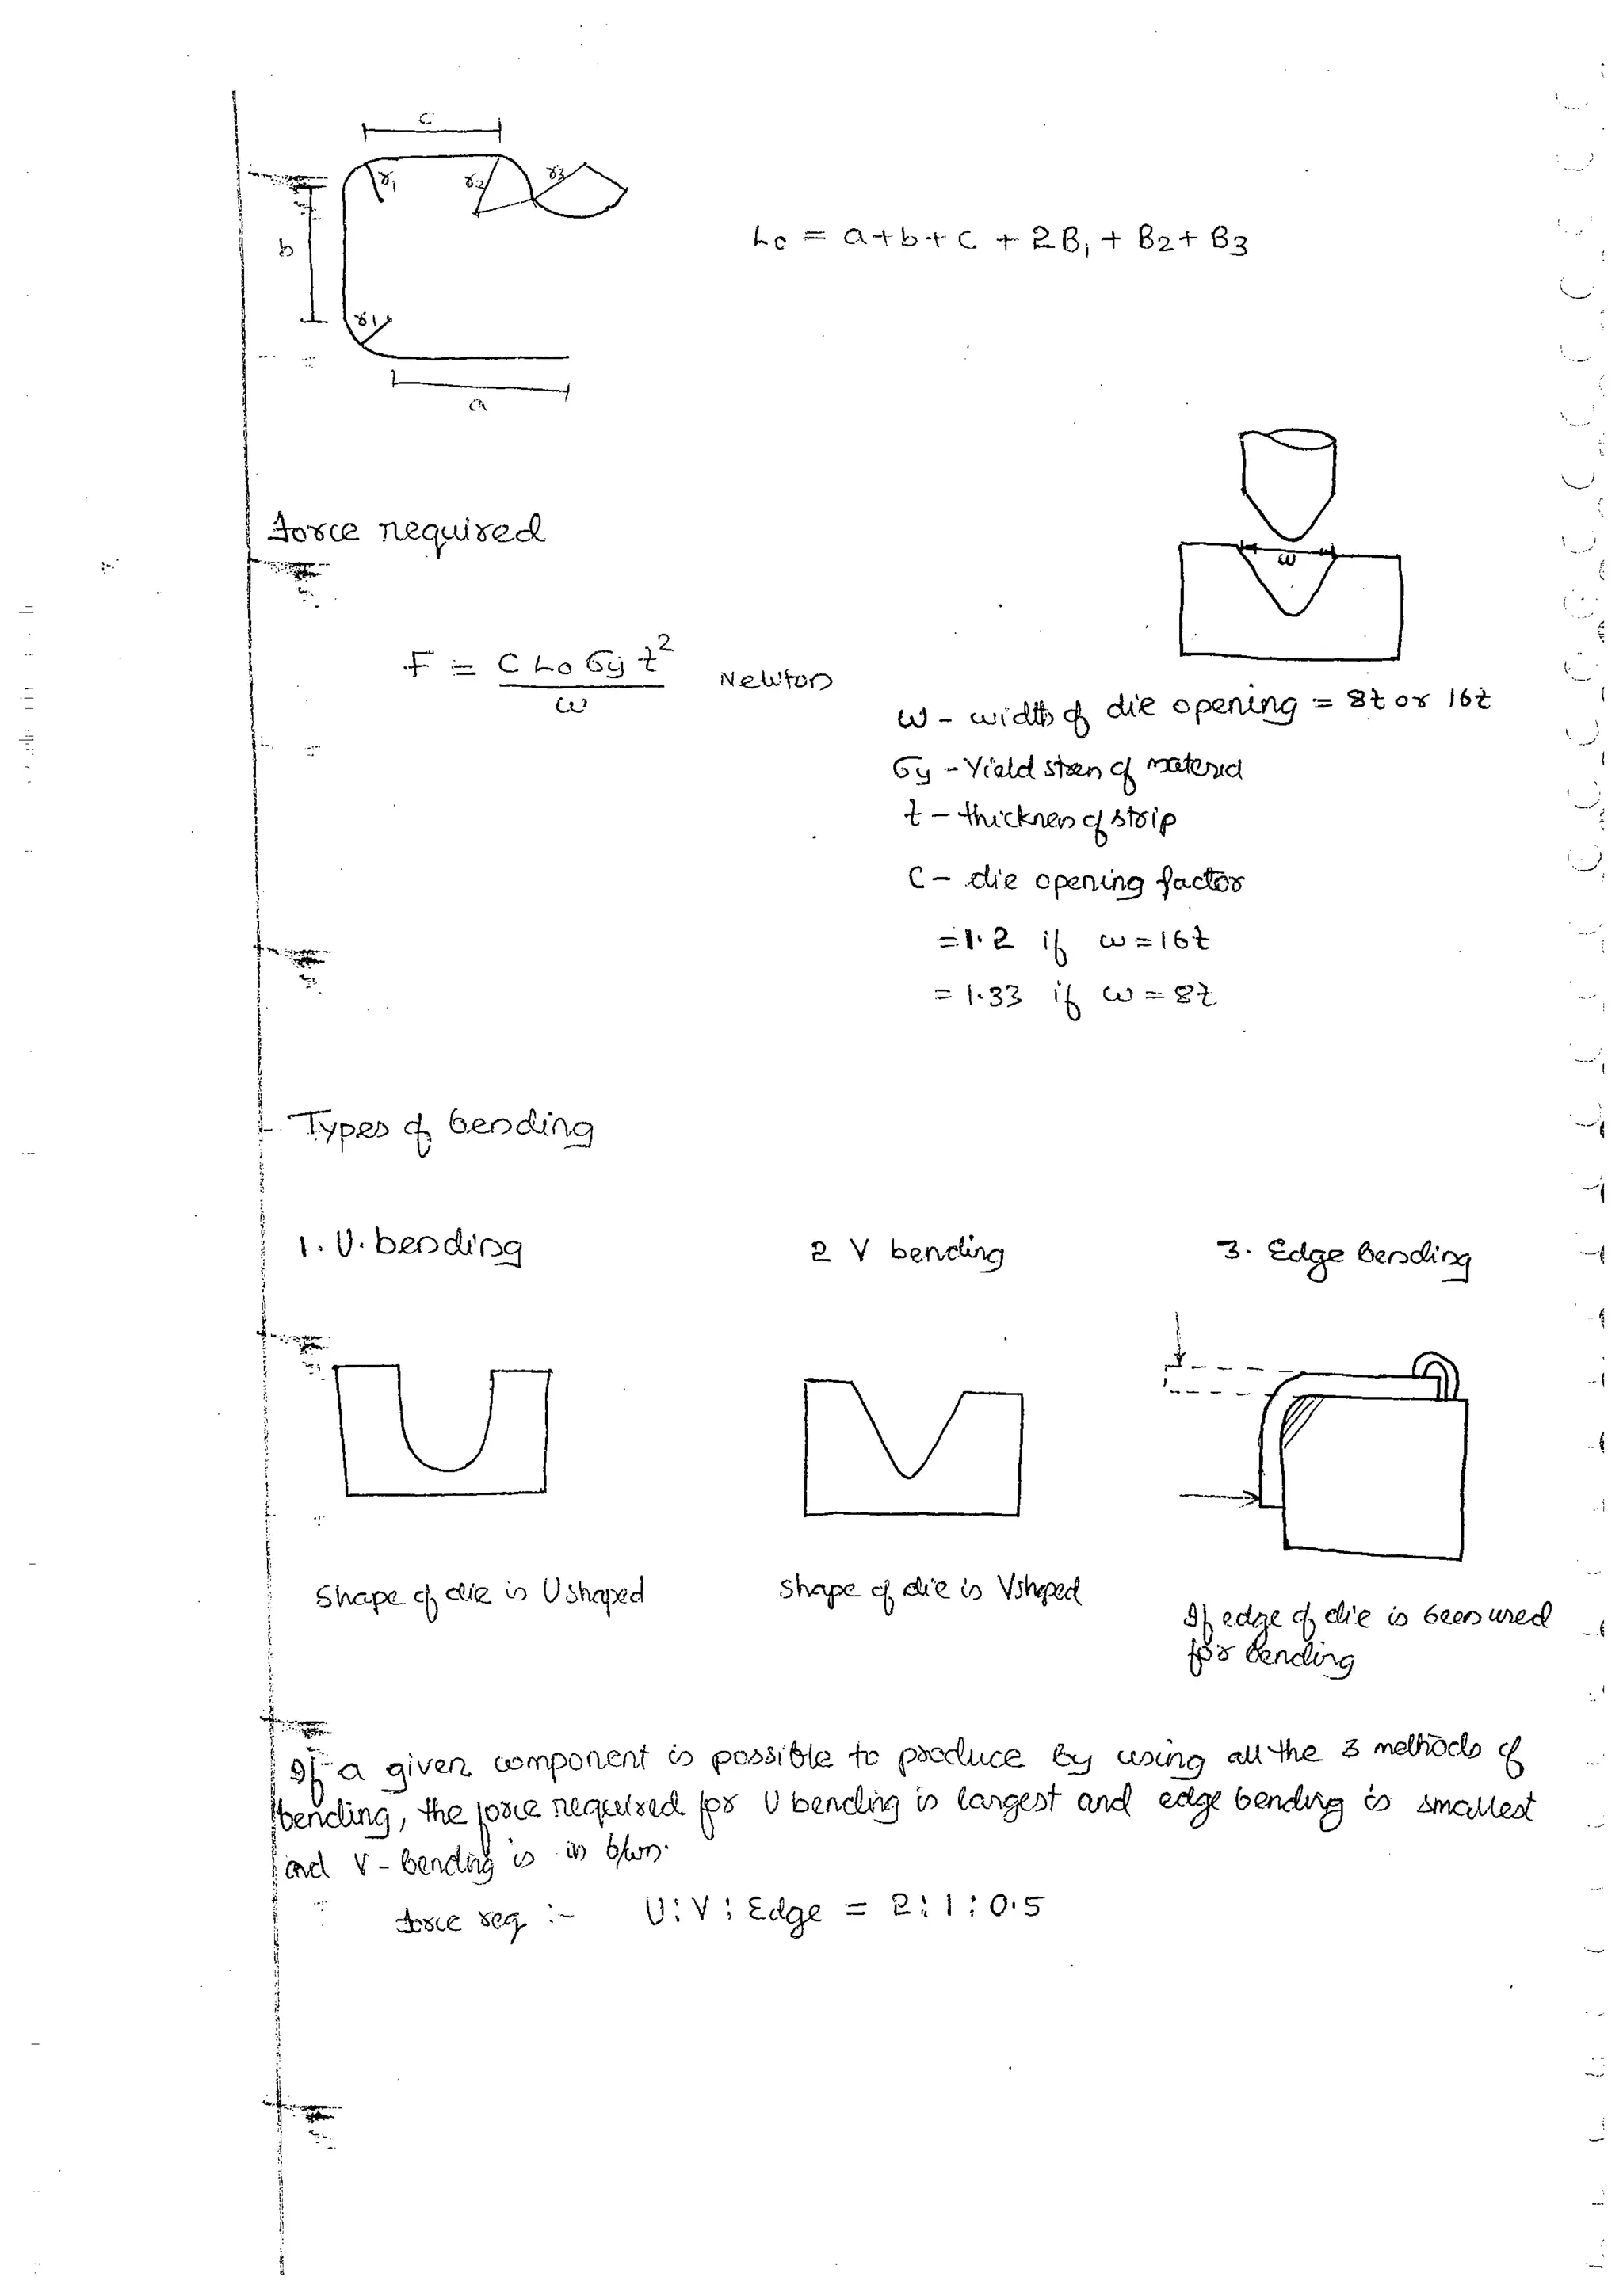 c
r1 r2 r3
b
L0 = a+b+c + 2B1 + B2 + B3
r1
a
Force required
w
F = C L0 σy t² / w Newton
w - width of die opening = 8t or 16t
σy - Yield stren of material
t - thickness of strip
C - die opening factor
= 1.2 if w = 16t
= 1.33 if w = 8t
Types of bending
1. U. bending
2 V bending
3. Edge Bending
Shape of die is U shaped
Shape of die is V shaped
If edge of die is been used
for bending
If a given component is possible to produce by using all the 3 methods of
bending, the force required for U bending is largest and edge bending is smallest
and V - bending is in b/wn.
force req :- U : V : Edge = 2 : 1 : 0.5